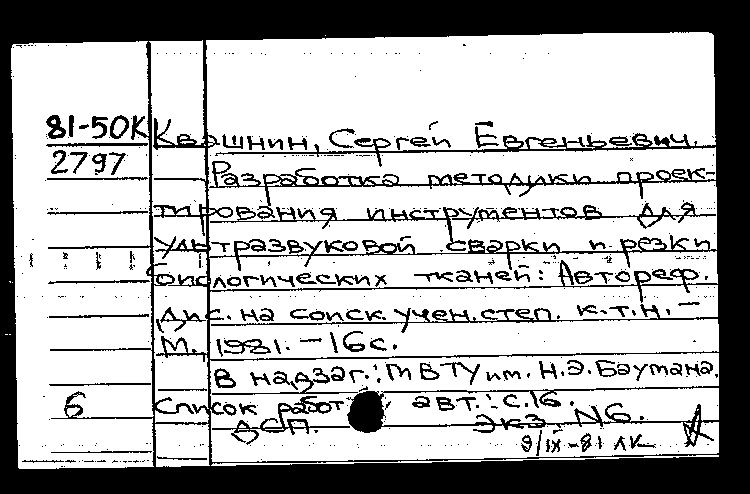 81-50К Квашнин, Сергей Евгеньевич.
2797
Разработка методики проек-
тирования инструментов для
ультразвуковой сварки и резки
биологических тканей: Автореф.
дис. на соиск. учен. степ. к.т.н. –
М., 1981. – 16с.
В надзаг.: МВТУ им. Н.Э. Баумана.
6 Список работ авт.: с.16.
ДСП. Экз. N6.
9/IX-81 ЛК